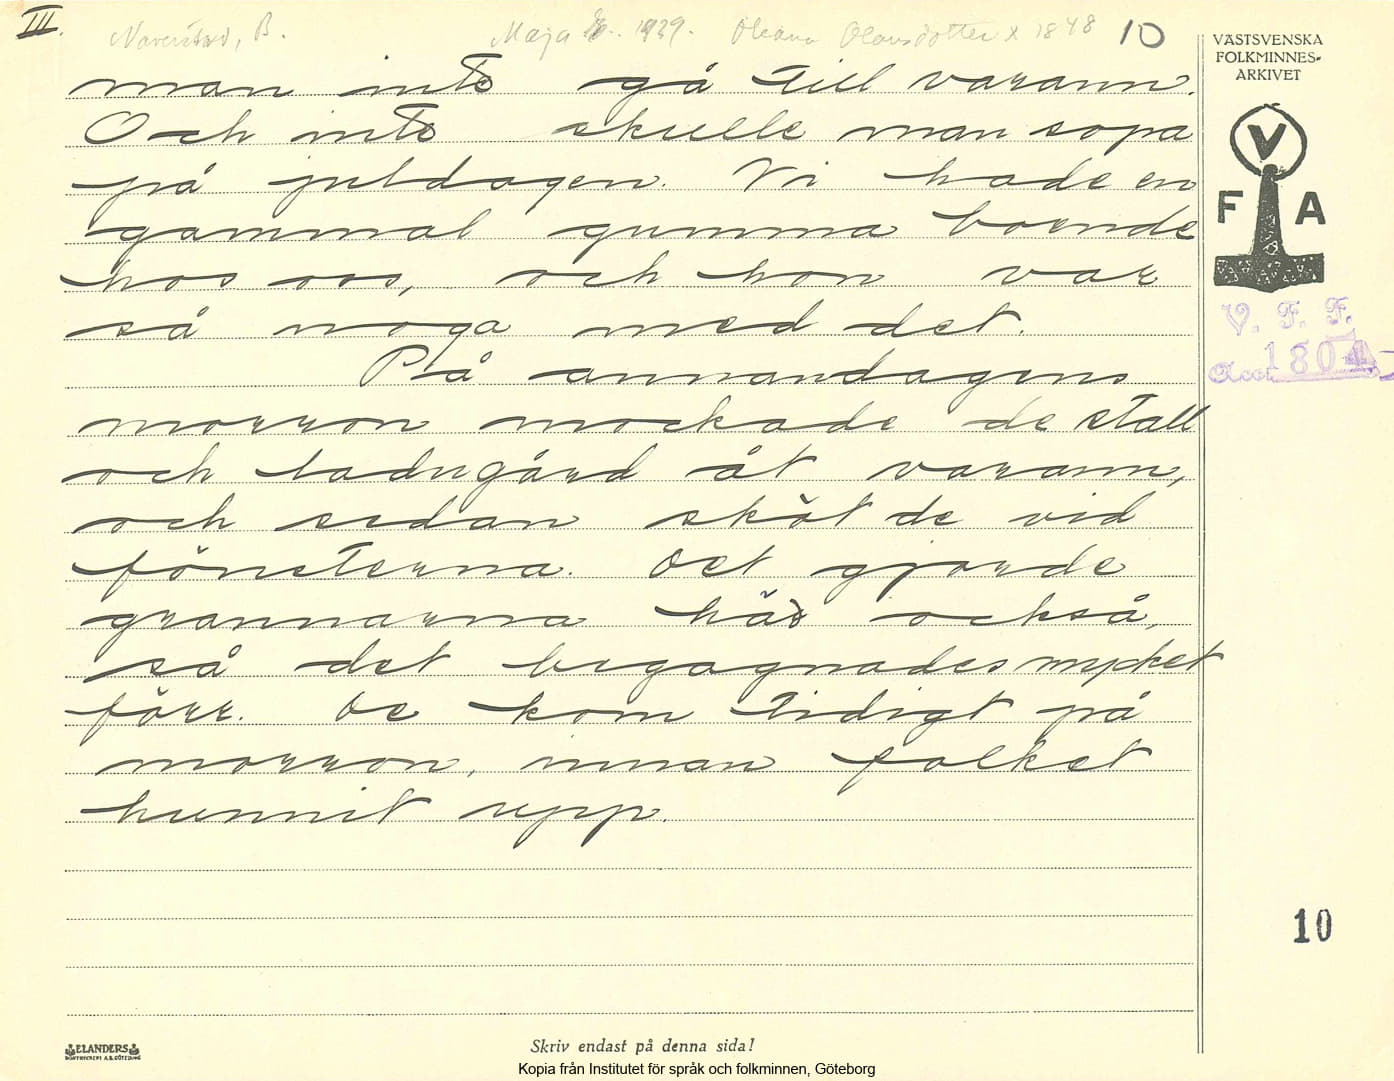 III.
Naverstad, B.
Maja E. 1929.
Oleana Olausdotter x 1848
10
man inte gå till varann.
Och inte skulle man sopa
på juldagen. Vi hade en
gammal gumma boende
hos oss, och hon var
så noga med det.
På annandagens
morron mockade de stall
och ladugård åt varann,
och sedan sköt de vid
fönsterna. Det gjorde
grannarna här också,
så det begagnades mycket
förr. De kom tidigt på
morron, innan folket
hunnit upp.
VÄSTSVENSKA
FOLKMINNES-
ARKIVET
V
F A
V. F. F.
Acc. 1804
10
ELANDERS
BOKTRYCKERI A.B. GÖTEBORG
Skriv endast på denna sida!
Kopia från Institutet för språk och folkminnen, Göteborg